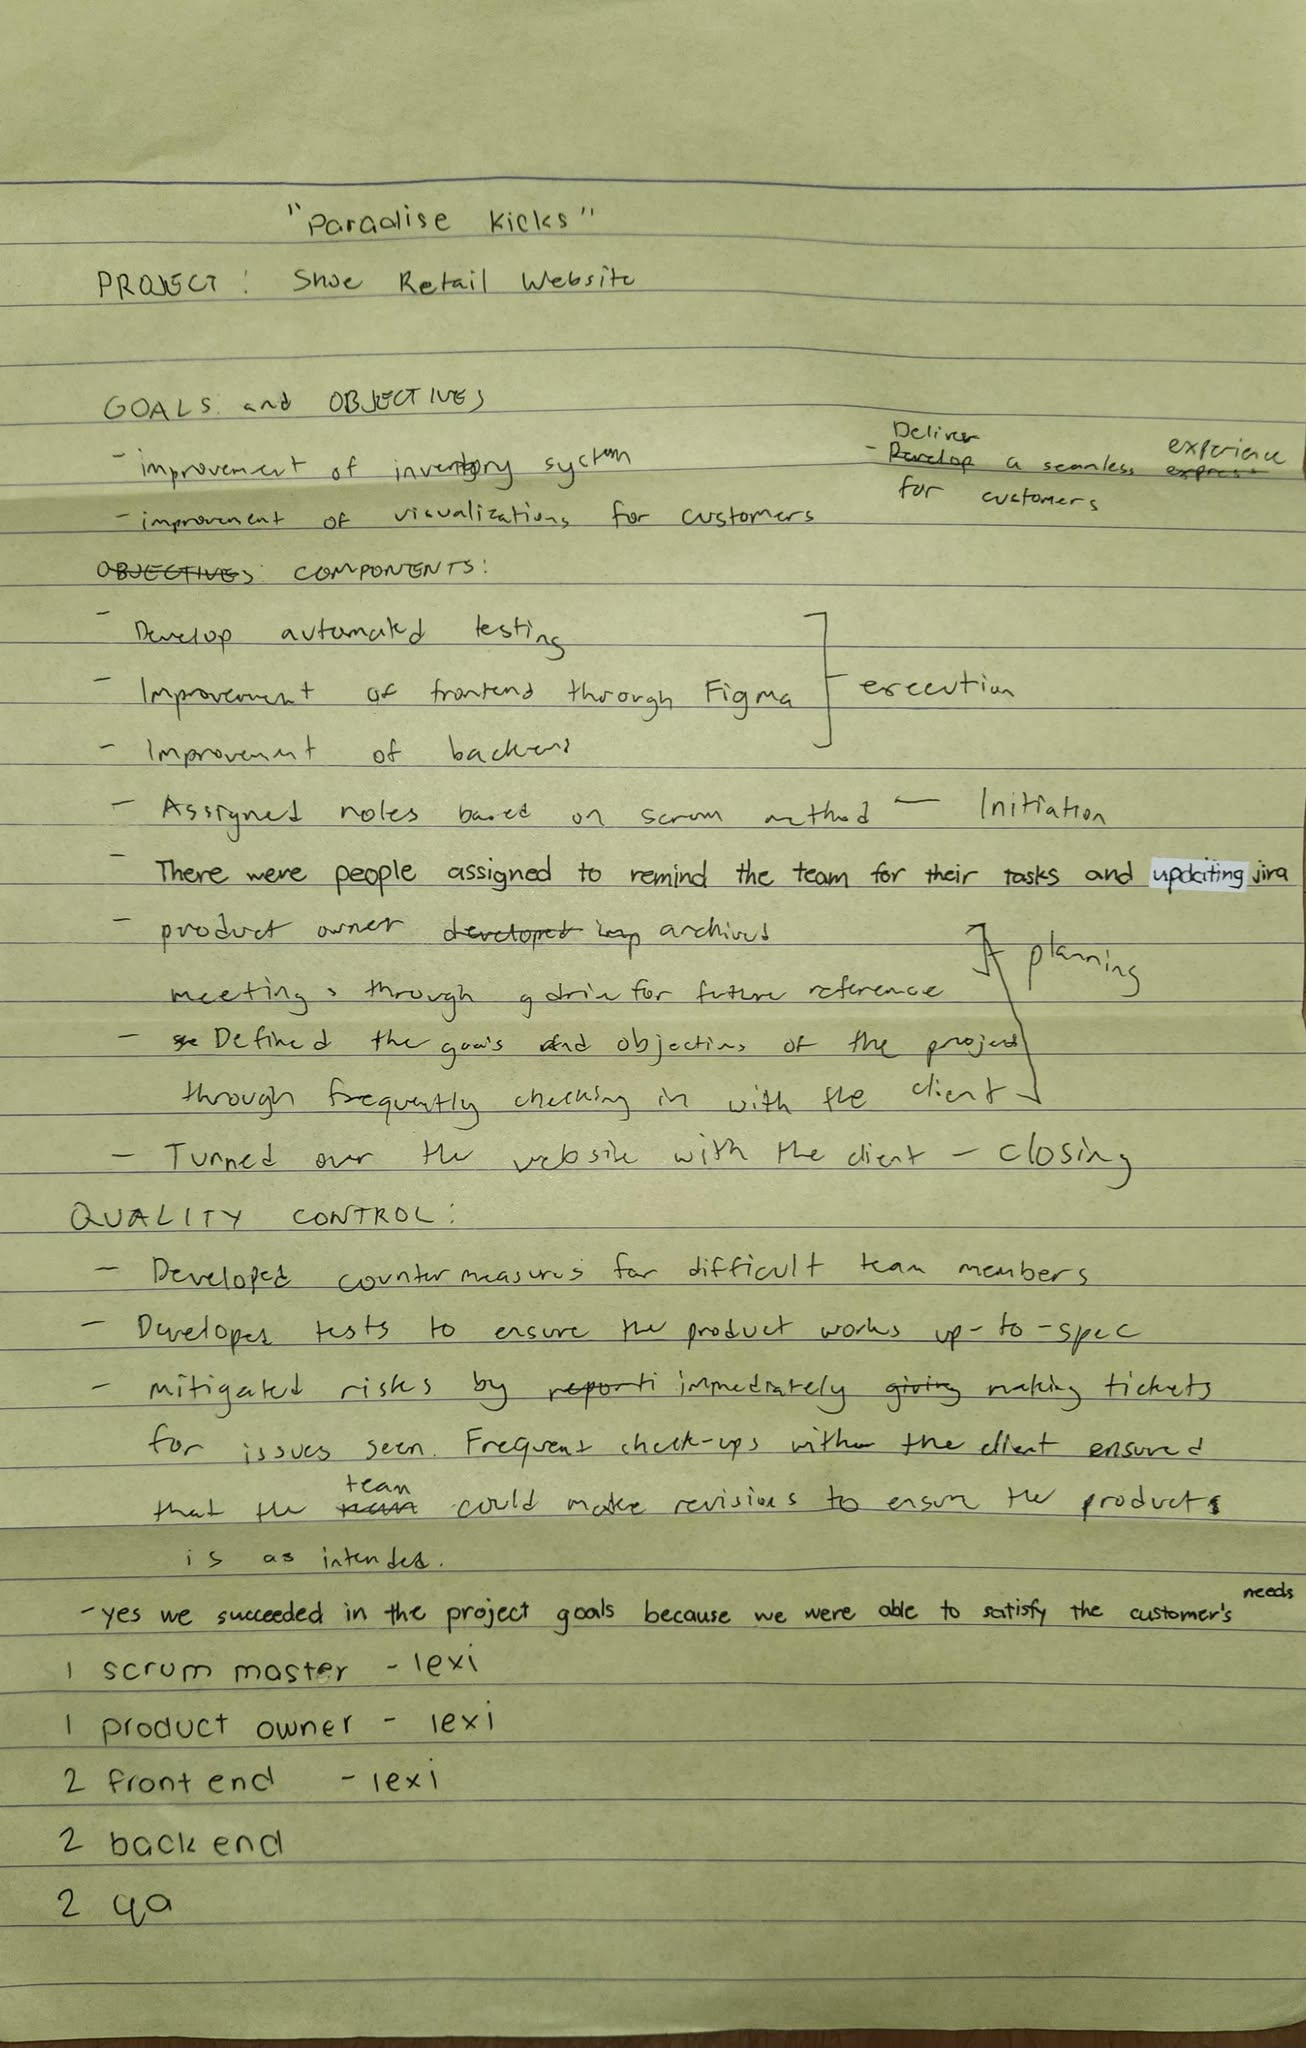 "Paradise Kicks"
PROJECT: Shoe Retail Website
GOALS and OBJECTIVES
- improvement of inventory system
- improvement of visualizations for customers
Deliver
- Develop a seamless experience
for customers
OBJECTIVES: COMPONENTS:
- Develop automated testing
- Improvement of frontend through Figma
execution
- Improvement of backend
- Assigned roles based on scrum method — Initiation
- There were people assigned to remind the team for their tasks and updating jira
- product owner developed archived
planning
meetings through gdrive for future reference
- Defined the goals and objectives of the project
through frequently checking in with the client
- Turned over the website with the client - closing
QUALITY CONTROL:
- Developed counter measures for difficult team members
- Developed tests to ensure the product works up-to-spec
- mitigated risks by reporti immediately giving making tickets
for issues seen. Frequent check-ups with the client ensured
that the team could make revisions to ensure the product
is as intended.
- yes we succeeded in the project goals because we were able to satisfy the customer's needs
1 scrum master - lexi
1 product owner - lexi
2 front end - lexi
2 back end
2 qa